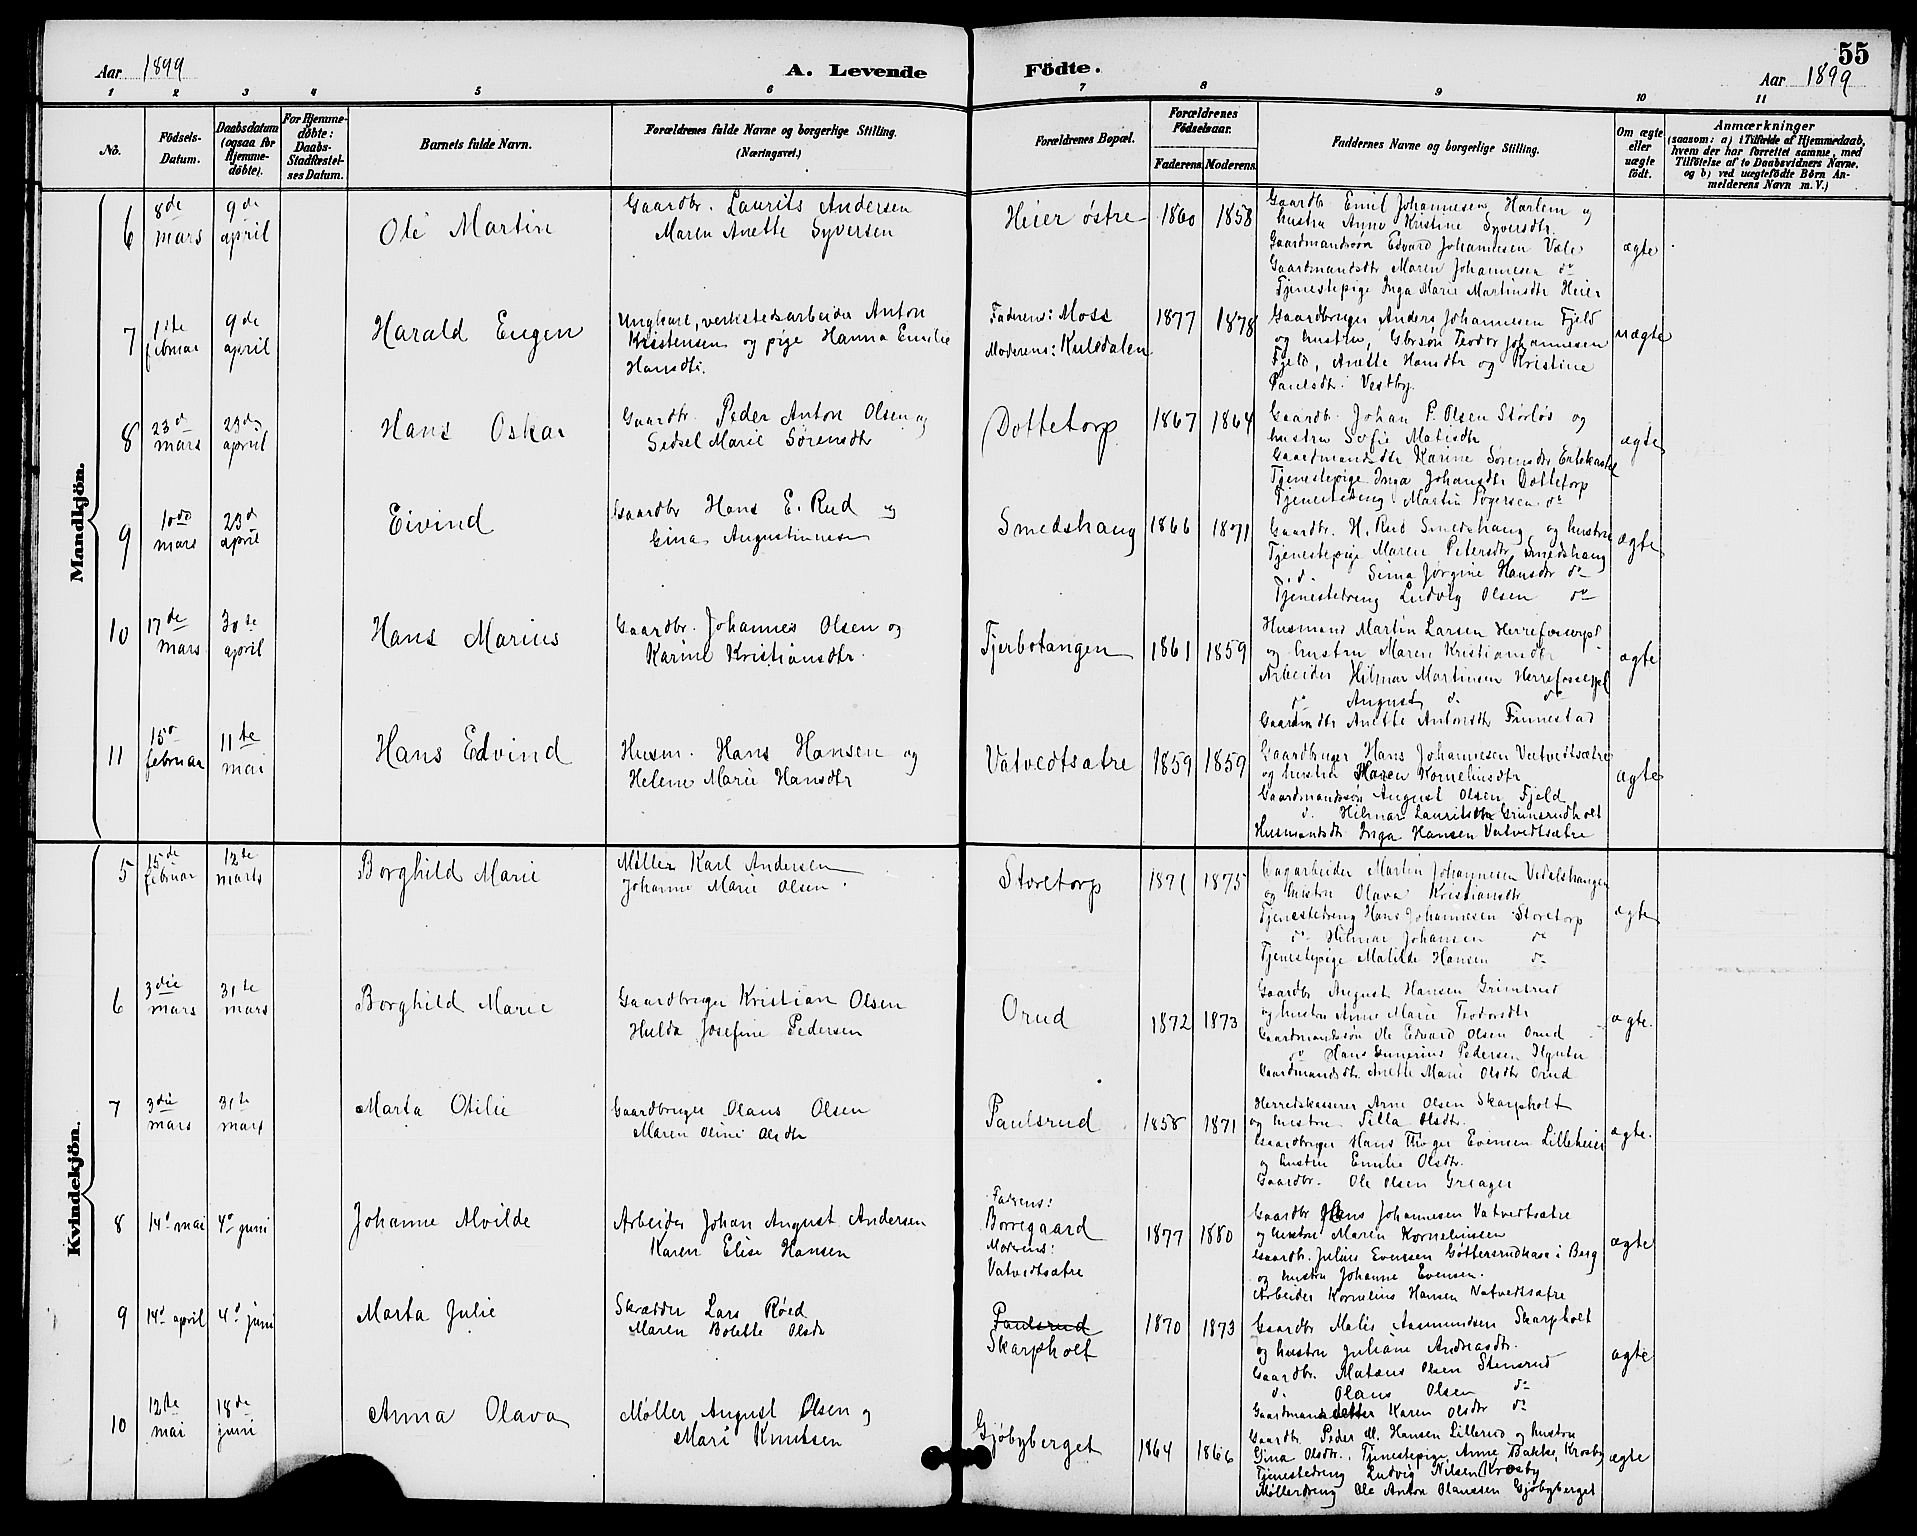 55
Aar 1899
A. Levende Födte.
Aar 1899
1 2 3 4 5 6 7 8 9 10 11
No.
Födsels-Datum.
Daabsdatum (ogsaa for Hjemmedöbte).
For Hjemmedöbte: Daabs-Stadfæstelses Datum.
Barnets fulde Navn.
Forældrenes fulde Navne og borgerlige Stilling. (Næringsvei.)
Forældrenes Bopæl.
Forældrenes Födselsaar.
Faderens. Moderens.
Faddernes Navne og borgerlige Stilling.
Om ægte eller uægte födt.
Anmærkninger
(saasom: a) i Tilfælde af Hjemmedaab, hvem der har forrettet samme, med Tilföielse af to Daabsvidners Navne. og b) ved uægtefödte Börn Anmelderens Navn m. V.)
Mandkjön.
6
8de mars
9de april
Ole Martin
Gaardbr. Laurits Andersen
Maren Anette Syversen
Heier østre
1860 1858
Gaardbr. Emil Johannesen Harlem og
hustru Anna Kristine Syversdtr.
Gaardmandssøn Edvard Johannesen Vale
Gaardmandsdtr Maren Johannesen do
Tjenestepige Inga Marie Martinsdtr Heier
ægte
7
1ste februar
9de april
Harald Eugen
Ungkarl, verkstedsarbeider Anton
Kristensen og pige Hanna Emilie
Hansdtr.
Faderens: Moss
Moderens: Kulsdalen
1877 1878
Gaardbruger Anders Johannesen Fjeld
og hustru, Gbrsøn Teodor Johannesen
Fjeld, Anette Hansdtr og Kristine
Paulsdtr. Vestby.
uægte
8
23d mars
23d april
Hans Oskar
Gaardbr. Peder Anton Olsen og
Sedsel Marie Sørensdtr
Dottetorp
1867 1864
Gaardbr. Johan P. Olsen Størløs og
hustru Sofie Matisdtr
Gaardmandsdtr Karine Sørensdtr
Tjenestepige Inga Johansdtr Dottetorp
Tjenestedreng Martin do
ægte
9
10de mars
23d april
Eivind
Gaardbr Hans E. Rud og
Gina Augustinusen
Smedshaug
1866 1871
Gaardbr. H. Rud Smedshaug, og hustru
Tjenestepige Maren Petersdtr, Smedshaug
d. Sina Jørgine Hansdtr do
Tjenestedreng Ludvig Olsen do
ægte
10
17de mars
30te april
Hans Marius
Gaardbr. Johannes Olsen og
Karine Kristiansdtr.
Tjerbotangen
1861 1859
Husmand Martin Larsen
og hustru Maren Kristiansdtr
Arbeider Hilmar Martinsen
do August d. do
Gaardmdtr Anette Antonsdtr Finnestad
ægte
11
15d februar
11te mai
Hans Edvind
Husm. Hans Hansen og
Helene Marie Hansdtr
Vatvedtsætre
1859 1859
Gaardbruger Hans Johannesen Vatvedtsætre
og hustru Maren Kornelinsdtr
Gaardmandssøn August Olsen Fjeld
d. Hilmar Lauritsen Grimsrudholt
Husmandsdtr Inga Hansen Vatvedtsætre
ægte
Kvindekjön.
5
15de februar
12te marts
Borghild Marie
Møller Karl Andersen
Johanne Marie Olsen.
Storetorp
1871 1875
Sagarbeider Martin Johannesen
og hustru Olava Kristiansdtr
Tjenestedreng Hans Johannesen Storetorp
d. Hilmar Johansen do
Tjenestepige Matilde Hansen do
ægte
6
3die mars
31te mars
Borghild Marie
Gaardbruger Kristian Olsen
Hulda Josefine Pedersen
Orud
1872 1873
Gaardbr August Hansen Grimsrud
og hustru Anne Marie Teodorsdtr
Gaardmandssøn Ole Edvard Olsen Orud
do Hans Gunerius Pedersen
Gaardmandsdtr. Anette Marie Olsdtr Orud
ægte.
7
3die mars
31te mars
Marta Otilie
Gaardbruger Olaus Olsen
Maren Oline Olsdtr
Paulsrud
1858 1871
Herredskasserer Arne Olsen Skarpholt
og hustru Tilla Olsdtr.
Gaardbruger Hans Thoger Evensen Lilleheier
og hustru Emilie Olsdtr.
Gaardbr. Ole Olsen Greager
ægte.
8
14d mai
4d juni
Johanne Alvilde
Arbeider Johan August Andersen
Karen Elise Hansen
Faderens:
Borregaard
Moderens:
Vatvedtsætre
1877 1880
Gaardbr Hans Johannesen Vatvedtsætre
og hustru Maren Kornelinsen
Gaardbr. Julius Evensen Gøttersrudkasa i Berg
og hustru Johanne Evensen.
Arbeider Kornelius Hansen Vatvedtsætre
ægte
9
14d april
4d juni
Marta Julie
Skrædder Lars Røed
Maren Bolette Olsdtr
Paulsrud
Skarpholt
1870 1873
Gaardbr Matis Aasmundsen Skarpholt
og hustru Juliane Andreasdtr.
Gaardbr. Mataus Olsen Stensrud
d. Olaus Olsen do
Gaardmandsdatter Karen Olsdtr do
ægte
10
12te mai
18de juni
Anna Olava
Møller August Olsen og
Mari Knutsen
Gjøbyberget
1864 1866
Gaardbr Peder M. Hansen Lillerud og hustru
Gina Olsdtr., Tjenestepige Anne Bakke, Krosby
Tjenestedreng Ludvig Nilsen Krosby
Møllerdreng Ole Anton Olaussen Gjøbyberget
ægte